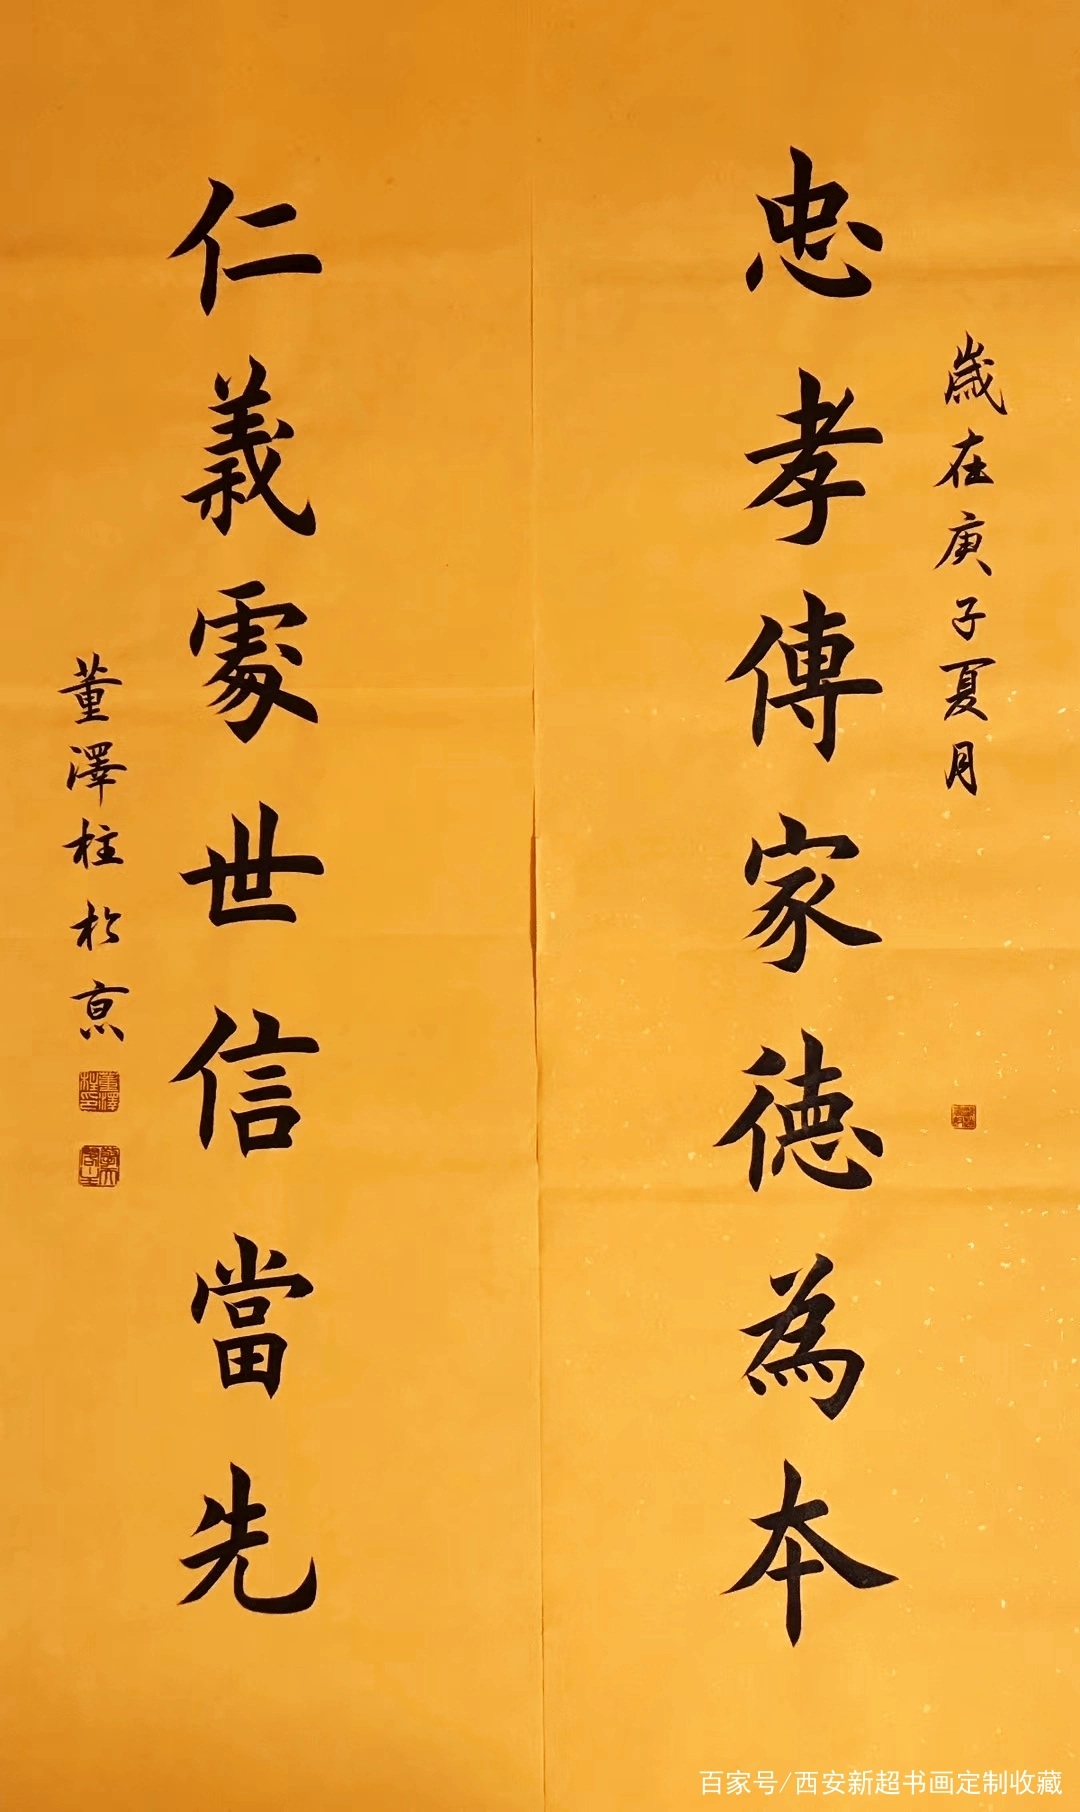 歲在庚子夏月
忠孝傳家德為本
仁義處世信當先
董澤柱於京
百家号/西安新超书画定制收藏